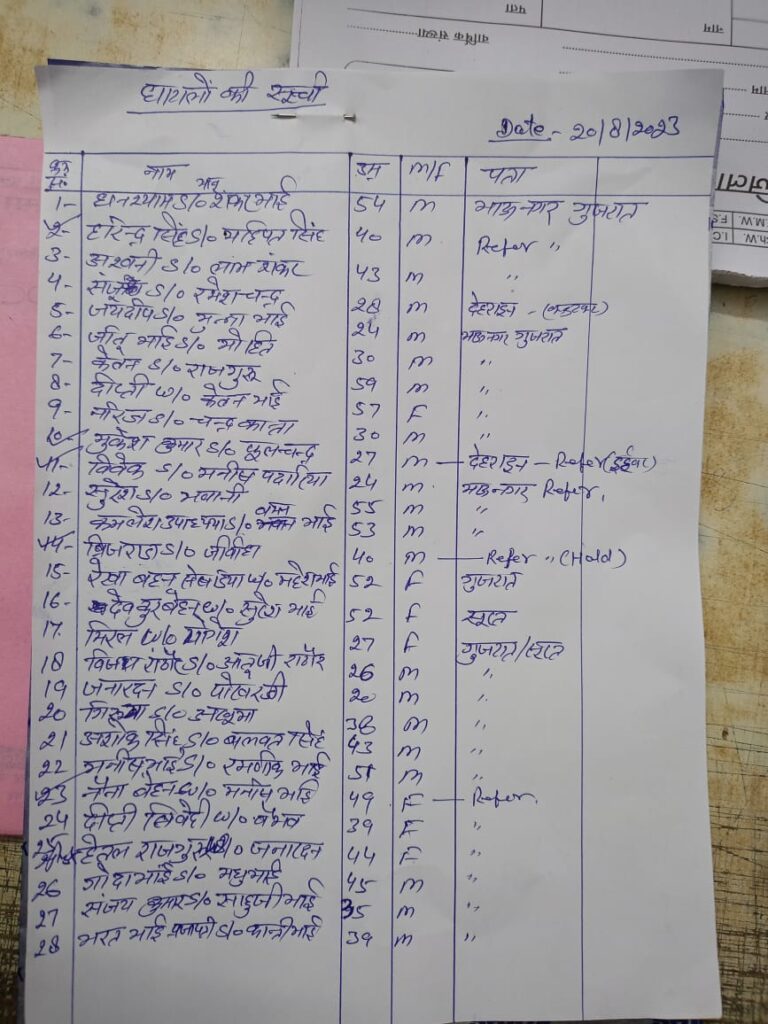 पता
नाम
वार्षिक संख्या
घायलों की सूची
Date - 20/8/2023
नाम उम्र M/F पता
1- घनश्याम S/o शंकर भाई 54 M भावनगर गुजरात
2- हरेन्द्र सिंह S/o महिपत सिंह 40 M Refer "
3- अश्वनी S/o लाभ शंकर 43 M "
4- S/o रमेशचन्द्र 28 M देहरादून -
5- जयदीप S/o मुन्ना भाई 24 M भावनगर गुजरात
6- जीतू भाई S/o मोहित 30 M "
7- केतन S/o राजगुरु 59 M "
8- दीप्ती w/o केतन भाई 57 F "
9- नीरज S/o चन्द्र कान्ता 30 M "
10- मुकेश कुमार S/o फूलचन्द्र 27 M - देहरादून - Refer (ड्राईवर)
11- विवेक S/o मनीष 24 M भावनगर Refer,
12- सुरेश S/o भवानी 55 M "
13- कमलेश उपाध्याय S/o भाई 53 M "
14- S/o 40 M - Refer " (Hold)
15- रेखा बहन w/o महेशभाई 52 F गुजरात
16- w/o सुरेश भाई 52 F सूरत
17. w/o योगेश 27 F गुजरात/सूरत
18 विजय राठौर S/o राठौर 26 M "
19 जनारदन S/o 20 M "
20 S/o 38 M "
21 अशोक सिंह S/o बलवन्त सिंह 43 M "
22 मनीषभाई S/o रमणीक भाई 51 M "
23 नैना बेहन w/o मनीष भाई 49 F - Refer.
24 दीप्ती त्रिवेदी w/o वैभव 39 F "
हेतल राजगुरु w/o जनारदन 44 F "
26 गोदाभाई S/o मधुभाई 45 M "
27 संजय कुमार S/o भाई 35 M "
28 भरत भाई S/o कान्तीभाई 39 M "